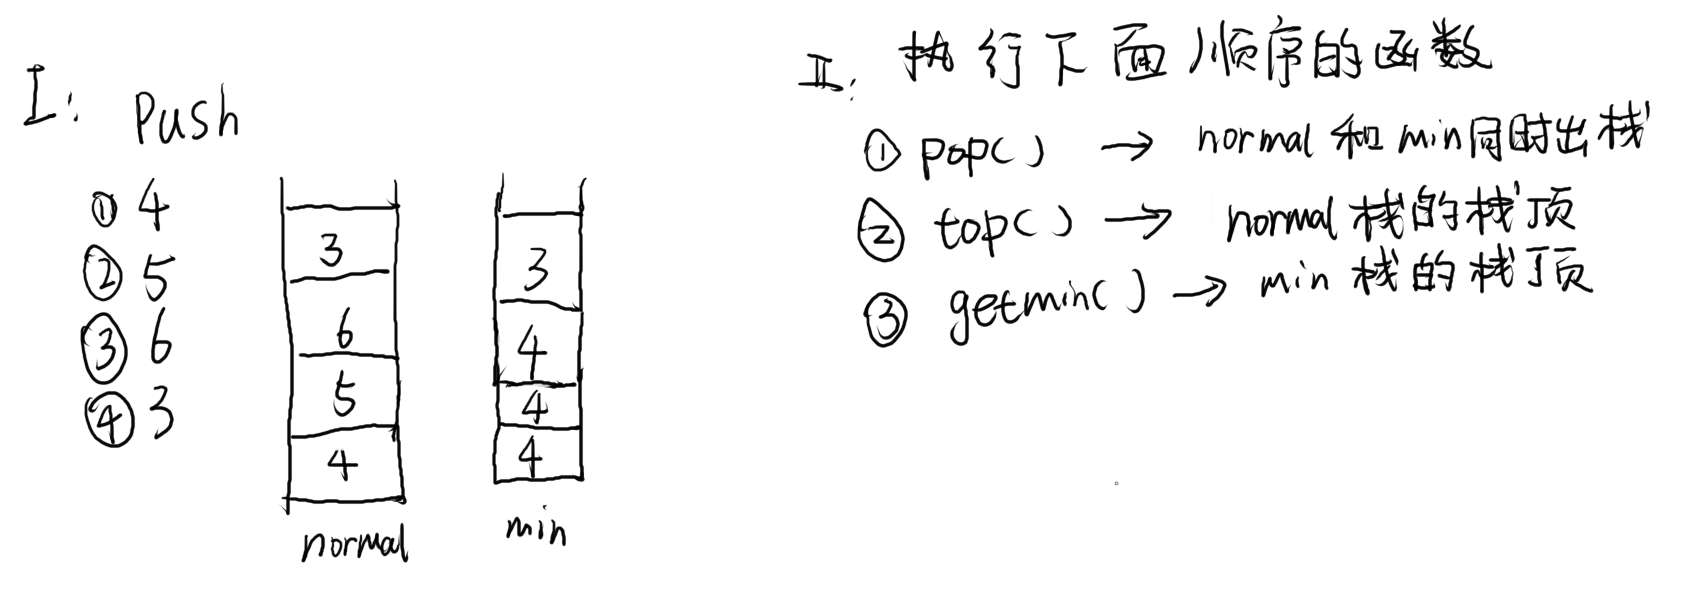 I: Push
① 4
② 5
③ 6
④ 3
3
6
5
4
normal
3
4
4
4
min
II: 执行下面顺序的函数
① pop() → normal 和 min同时出栈
② top() → normal 栈的栈顶
③ getmin() → min 栈的栈顶